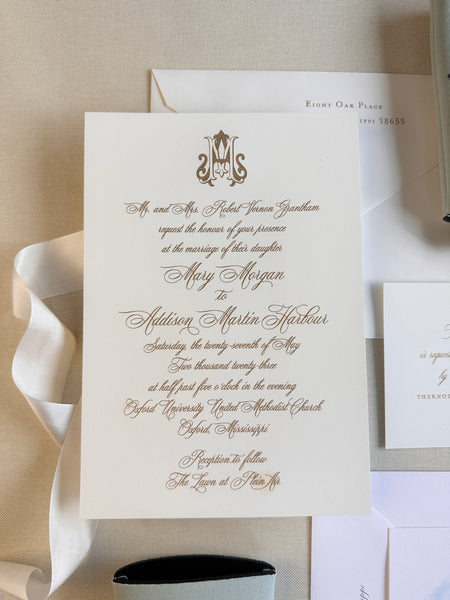 Eight Oak Place
ippi 38655
Mr. and Mrs. Robert Vernon Grantham
request the honour of your presence
at the marriage of their daughter
Mary Morgan
to
Addison Martin Harbour
Saturday, the twenty-seventh of May
Two thousand twenty-three
at half past five o'clock in the evening
Oxford University United Methodist Church
Oxford, Mississippi
Reception to follow
The Lawn at Plein Air
is reques
by
THEKNOT
ippi